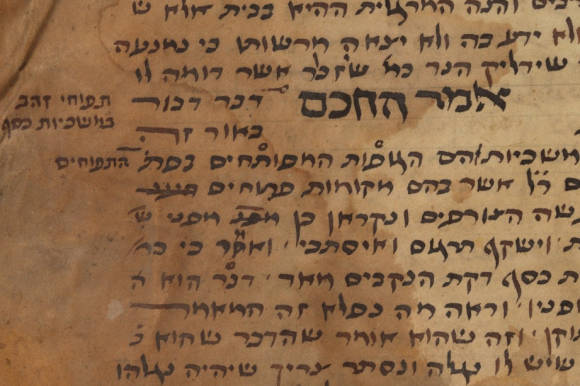 והנה המרגלית ההיא בבית אלא ש
ולא ידע בה ולא יצאה מרשותו כי נמנעה
שידליק הנר כמו שזכר אשר דומה לו
אמר החכם דבר דבור
תפוחי זהב
במשכיות כסף
באור זה
משכיות הם הגופות המפותחים בפתו
התפוחים
ר״ל אשר בהם מקומות פתוחים
עשה הצורפים ונקראו כן מפני ש
וישקף תרגום ואיסתכי ואמר כי כמ
ת כסף דקת הנקבים מאד דבר הוא ה
אפניו וראה מה נפלא זה המאמר
תוקן וזה שהוא אומר שהדבר שהוא ב
שיש לו נגלה ונסתר צריך שיהיה נגלהו